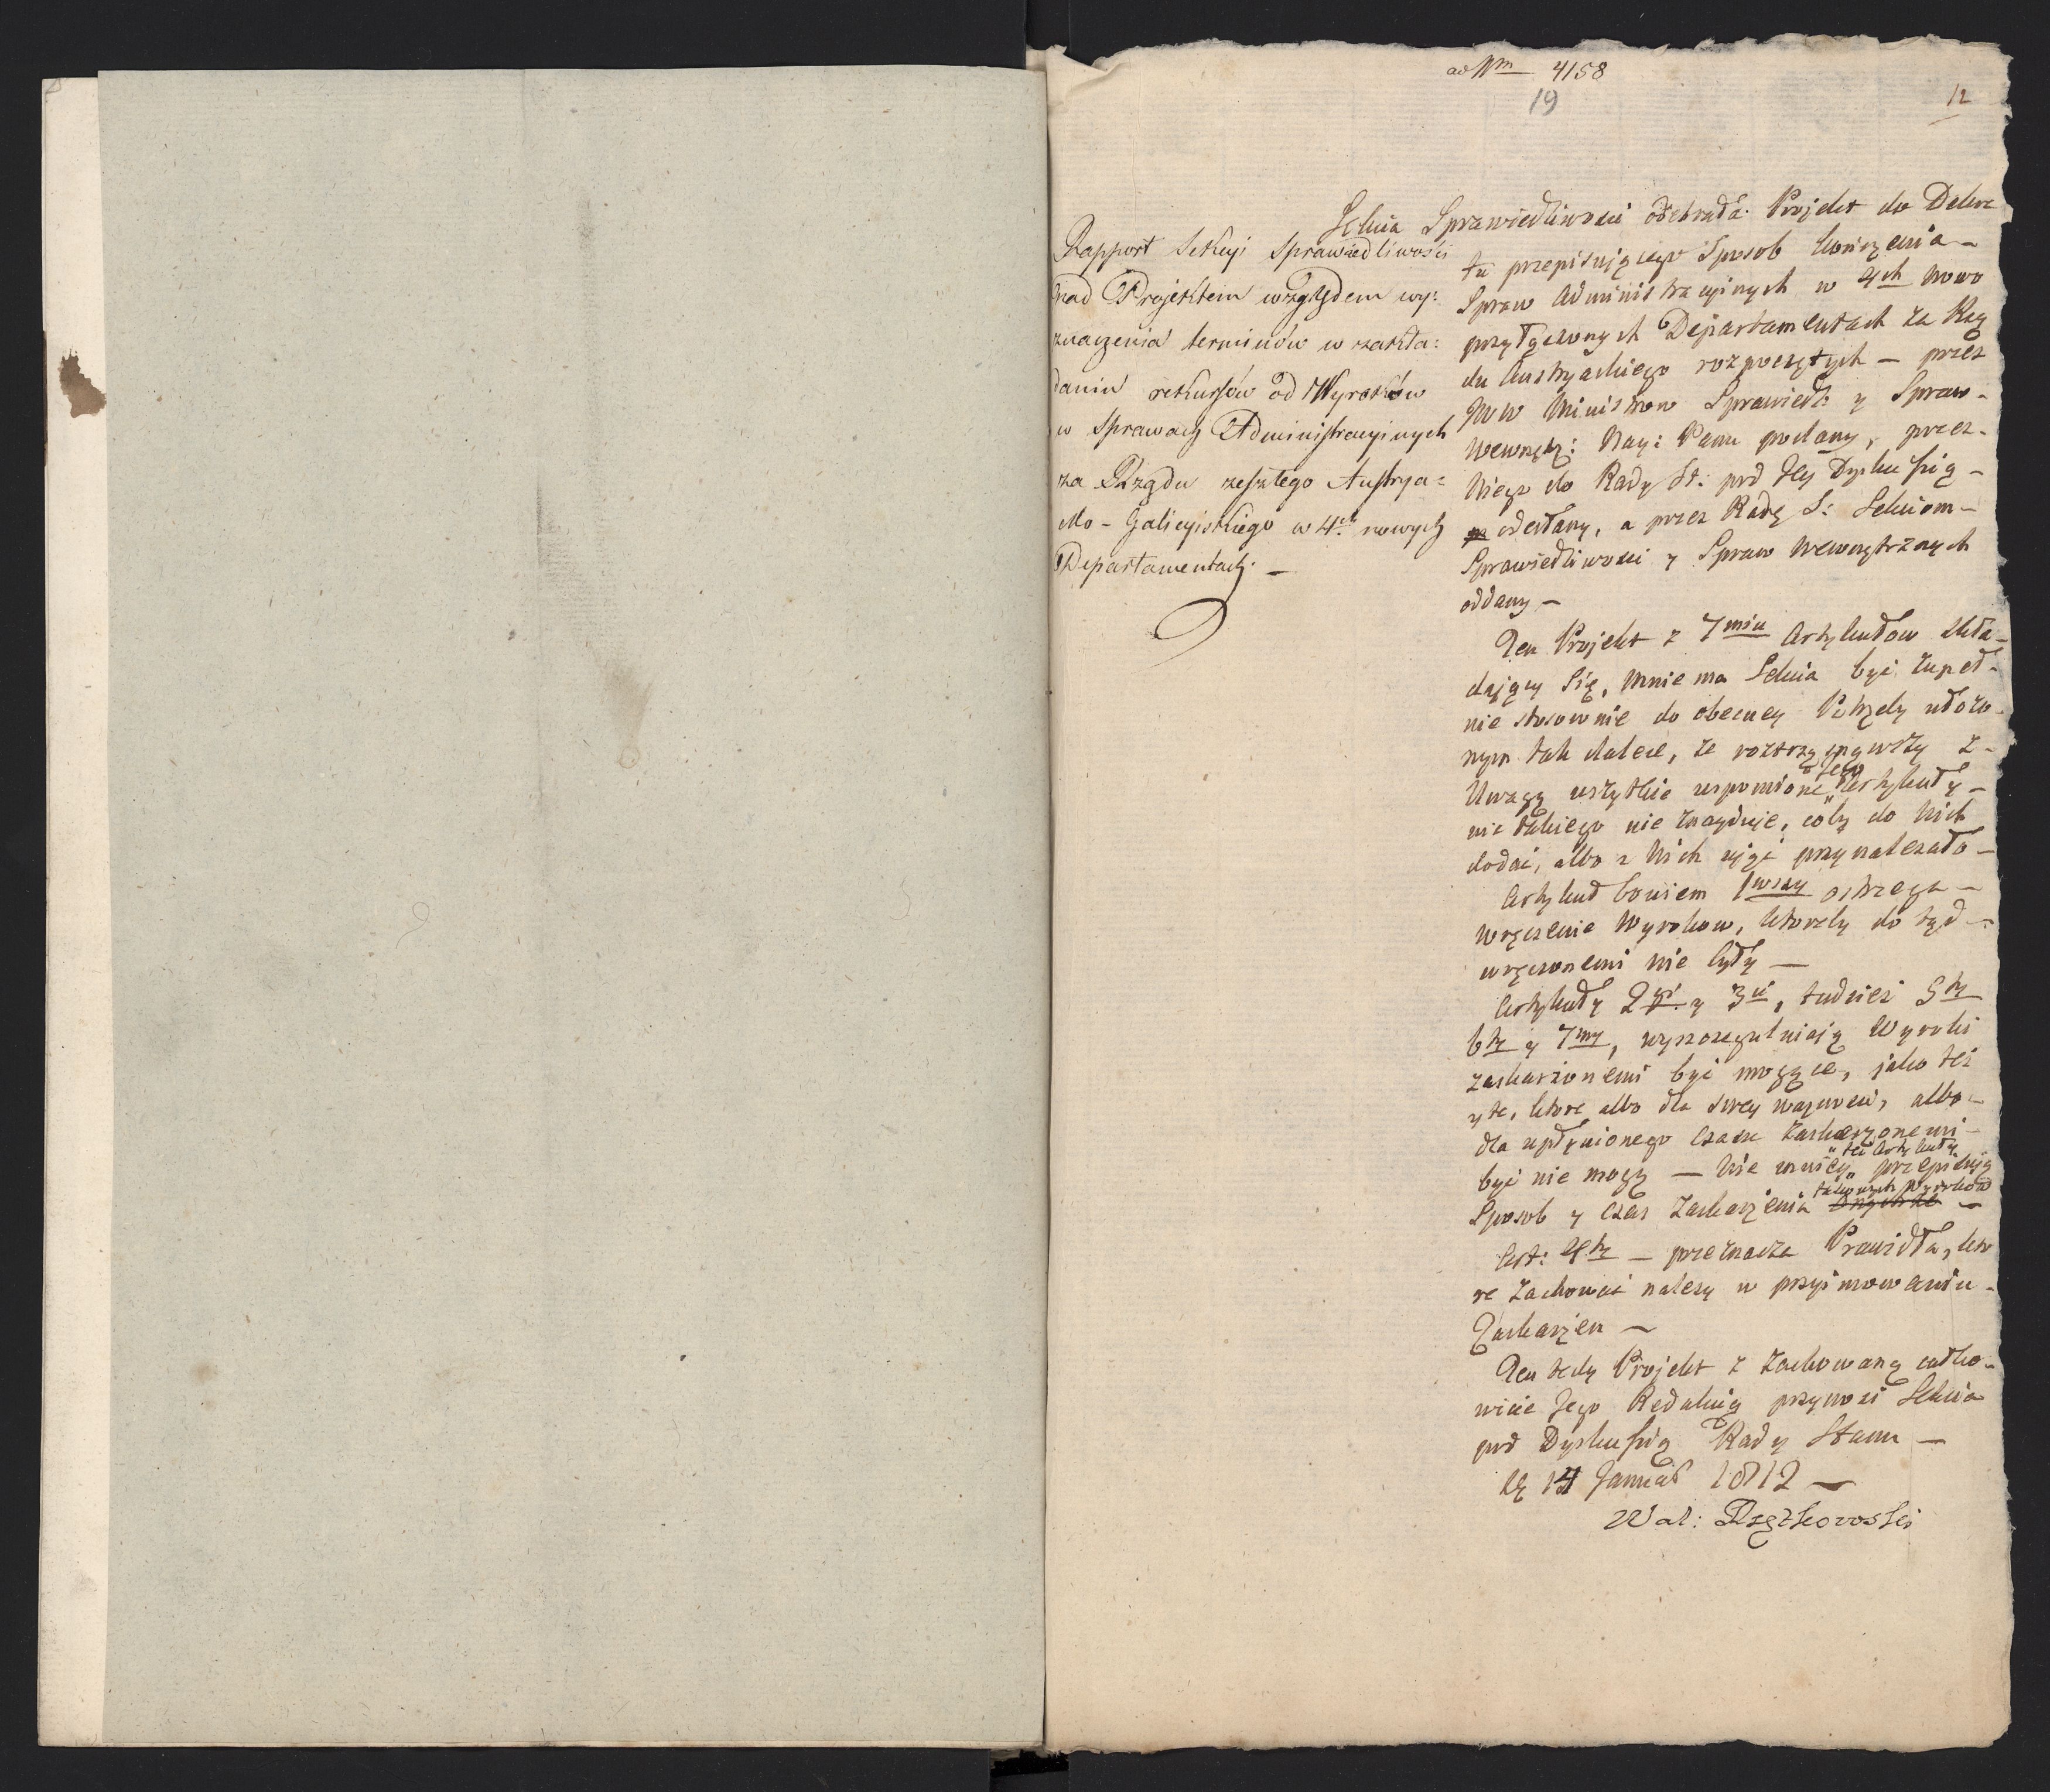 ad Nrm 4158
19
12
Rapport Sekcyi Sprawiedliwości
nad Projektem względem wy:
znaczenia terminów w zakła:
daniu rekursów od Wyroków
w Sprawach Administracyinych
za Rządu zeszłego Austrya=
cko-Galicyiskiego w 4ch nowych
Departamentach. —
Sekcia Sprawiedliwosci odebrała Projekt do Dekre
tu przepisuiącego Sposob kończenia —
Spraw Administracyinych w 4ch nowo
przyłączonych Departamentach za Rzą
du Austryackiego rozpoczętych — przez
JWW Ministrow Sprawiedl: y Spraw -
Wewnętz: Nay: Panu podany, przez -
Niego do Rady St: pod Jey Dyskussią -
odesłany, a przez Radę S: Sekciom -
Sprawiedliwosci y Spraw Wewnętrznych
oddany —
Ten Projekt z 7miu Artykułow skła-
daiący się, mniema Sekcia być zupeł-
nie stosownie do obecney Potrzeby ułożo-
nym tak dalece, że roztrząsnąwszy z -
Uwagą wszytkie wspomione Jego Artykuły -
nic takiego nie znayduie, coby do Nich
dodać, albo z Nich ująć przynależało -
Artykuł bowiem 1wszy ostrzega -
wręczenie Wyrokow, ktoreby do tąd -
wręczonemi nie były —
Artykuły 2gi y 3ci, tudzież 5ty
6ty y 7my, wyszczegulniaią Wyroki
zaskarżonemi być mogące, jako też
y te, ktore albo dla swey ważności, albo -
dla upłynionego czasu zaskarżonemi -
być nie mogą — Nie mniey też Artykuły przepisuią
Sposob y czas zaskarżenia takowych Wyrokow —
Art: 4ty — przeznacza Prawidła, kto
re zachować należy w przyimowaniu -
Zaskarżeń —
Ten tedy Projekt z zachowaną całko-
wicie Jego Redakcią przynosi Sekcia
pod Dyskussią Rady Stanu —
14 Januar 1812 —
Wal: